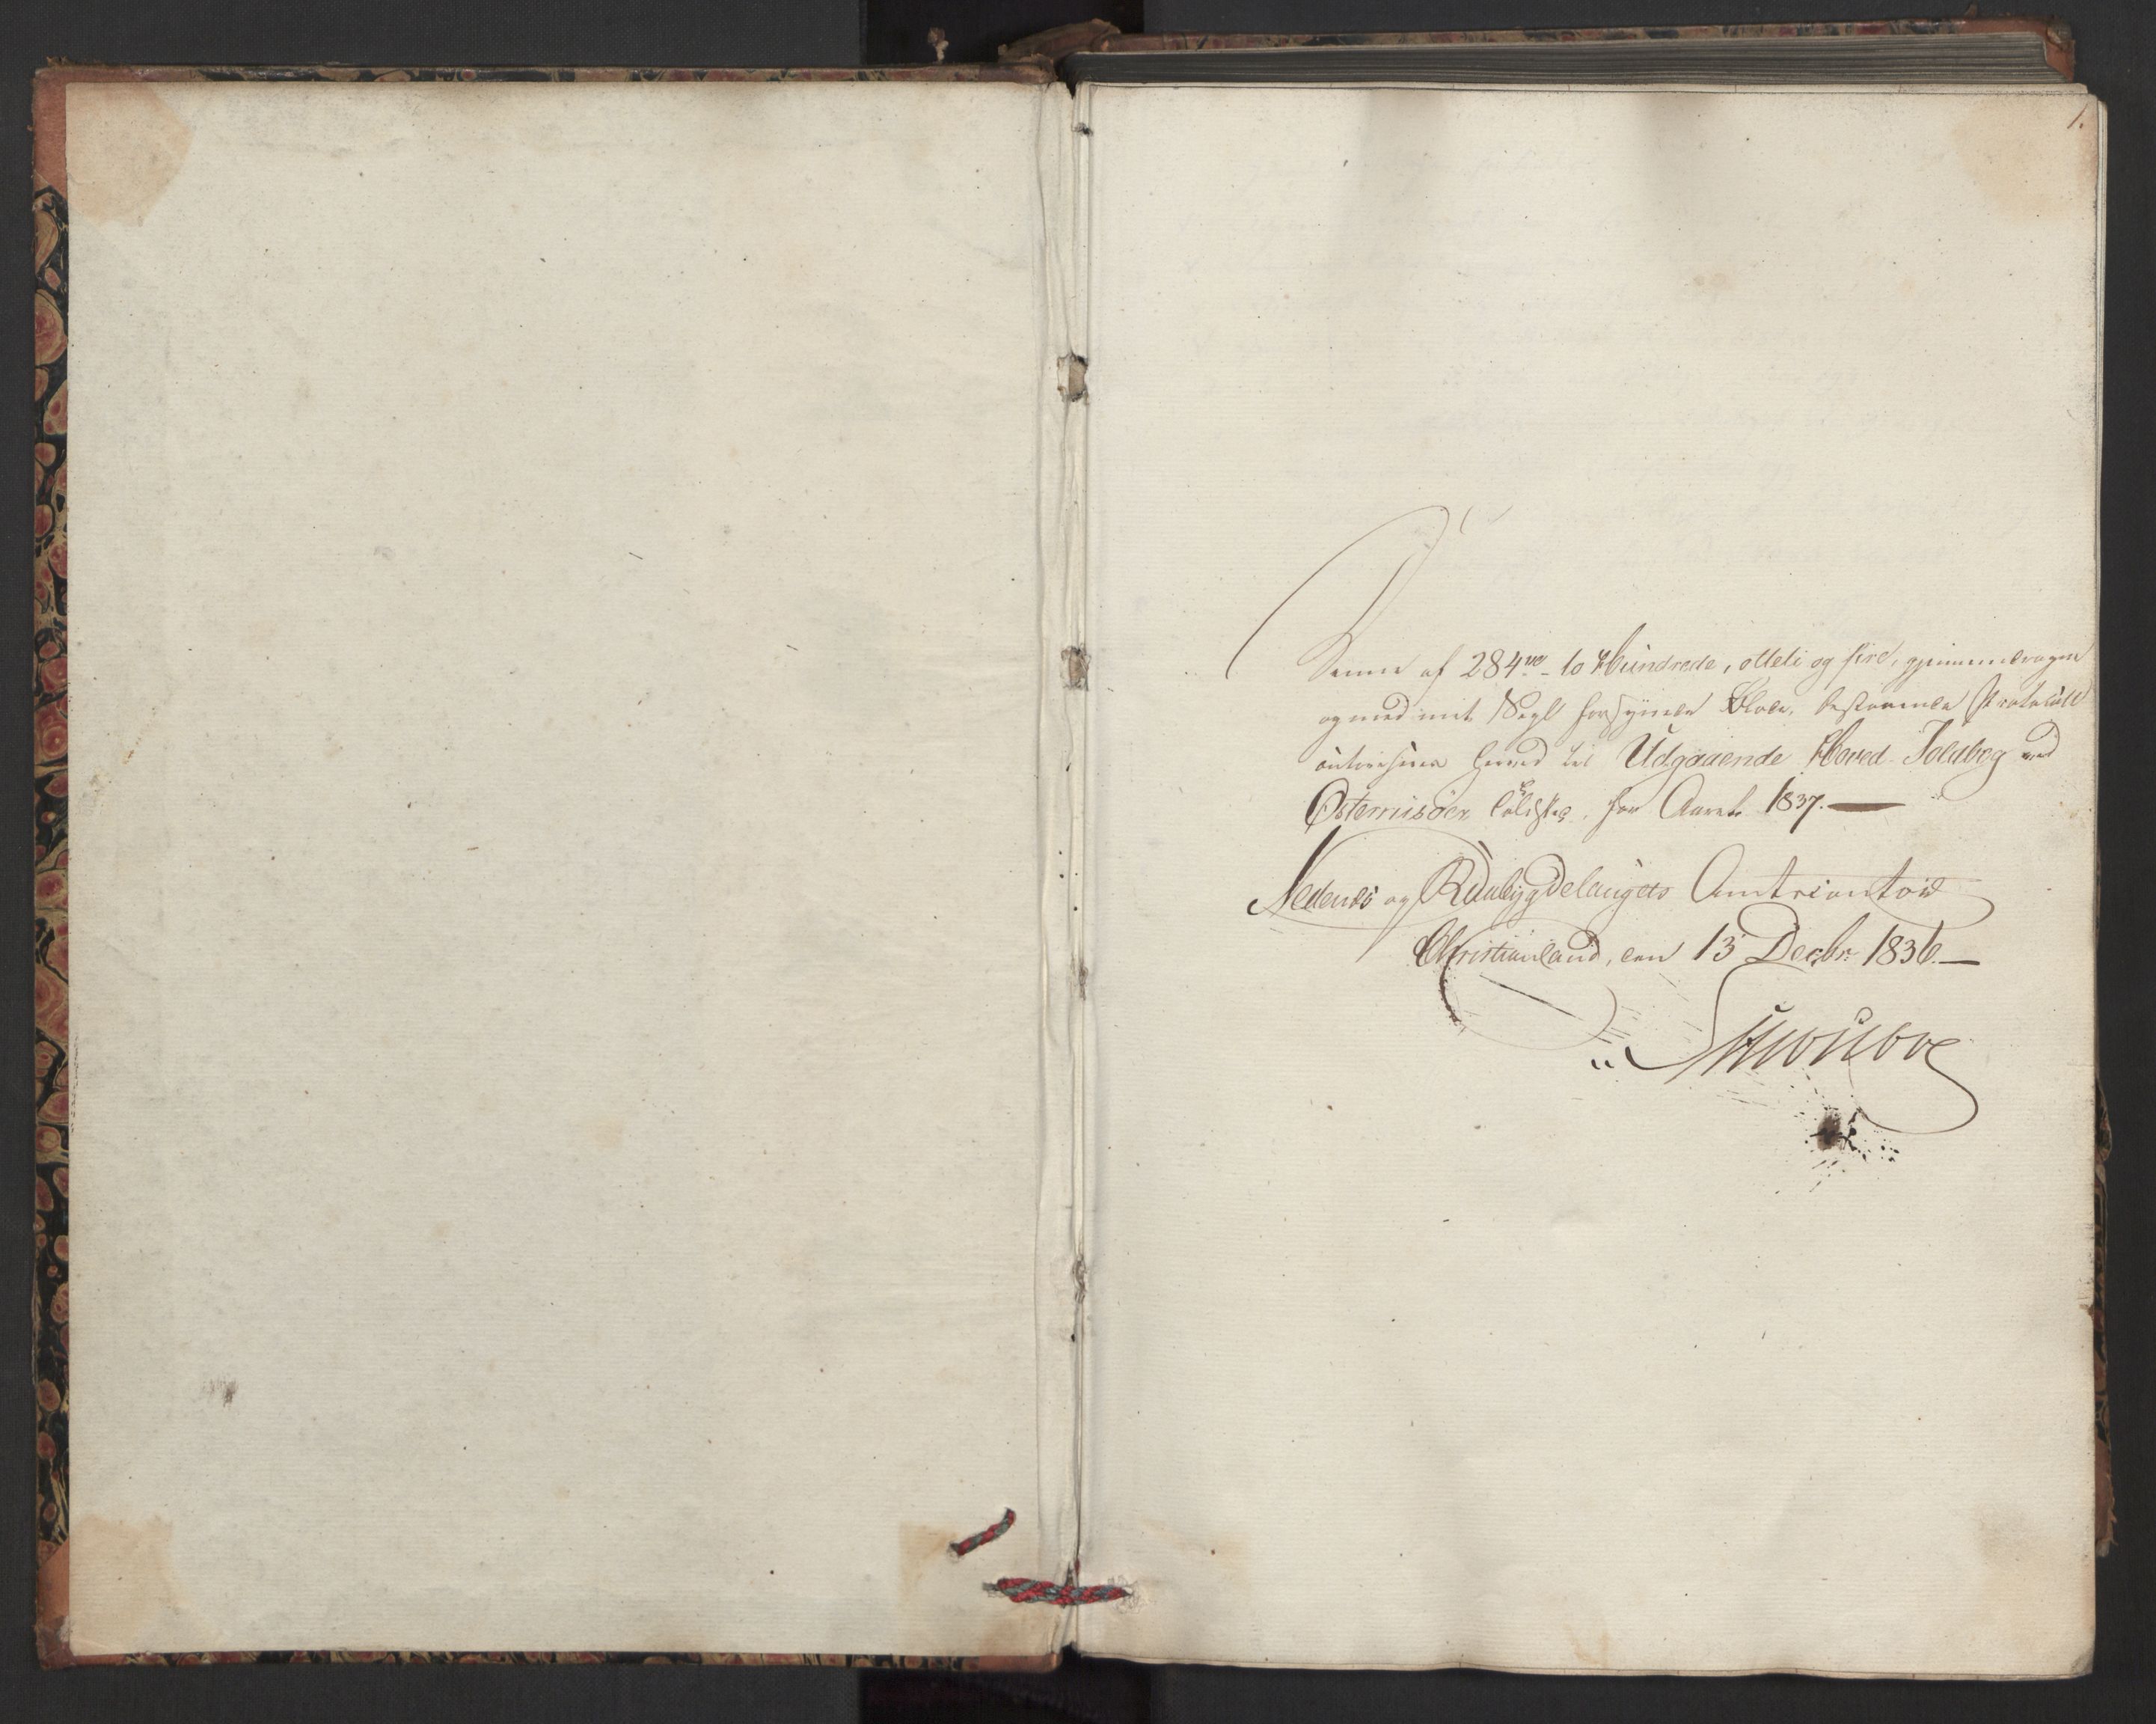 1.
Denne af 284ve - to Hundrede, otteti og fire, gjennemdragne
og med mit Segl forsynede Blade, bestaaende Protokoll
autoriseres herved til Udgaaende Hoved-Toldbog ved
Østerriisøer Toldsted, for Aaret 1837. —
Nedenæs og Raabygdelaugets Amtscontoir
Christiansand, den 13 Decbr. 1836. —